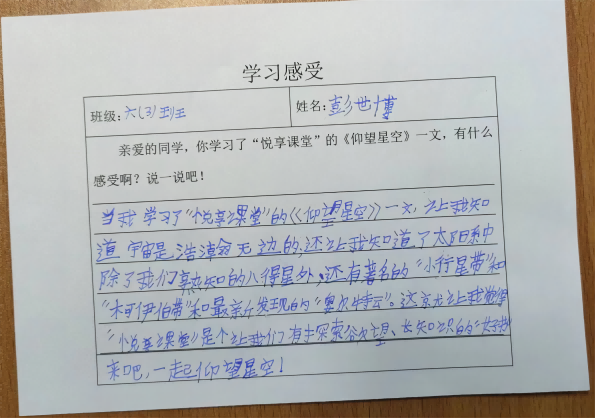 学习感受
班级:六(3)班 姓名:彭世博
亲爱的同学，你学习了“悦享课堂”的《仰望星空》一文，有什么
感受啊？说一说吧！
当我学习了“悦享课堂”的《仰望星空》一文，让我知
道宇宙是浩瀚无边的，还让我知道了太阳系中
除了我们熟知的八得星外，还有著名的“小行星带”和
“柯伊伯带”和最新发现的“奥尔特云”。这京尤让我觉得
“悦享课堂”是个让我们有探索欲望、长知识的“好
来吧，一起仰望星空！